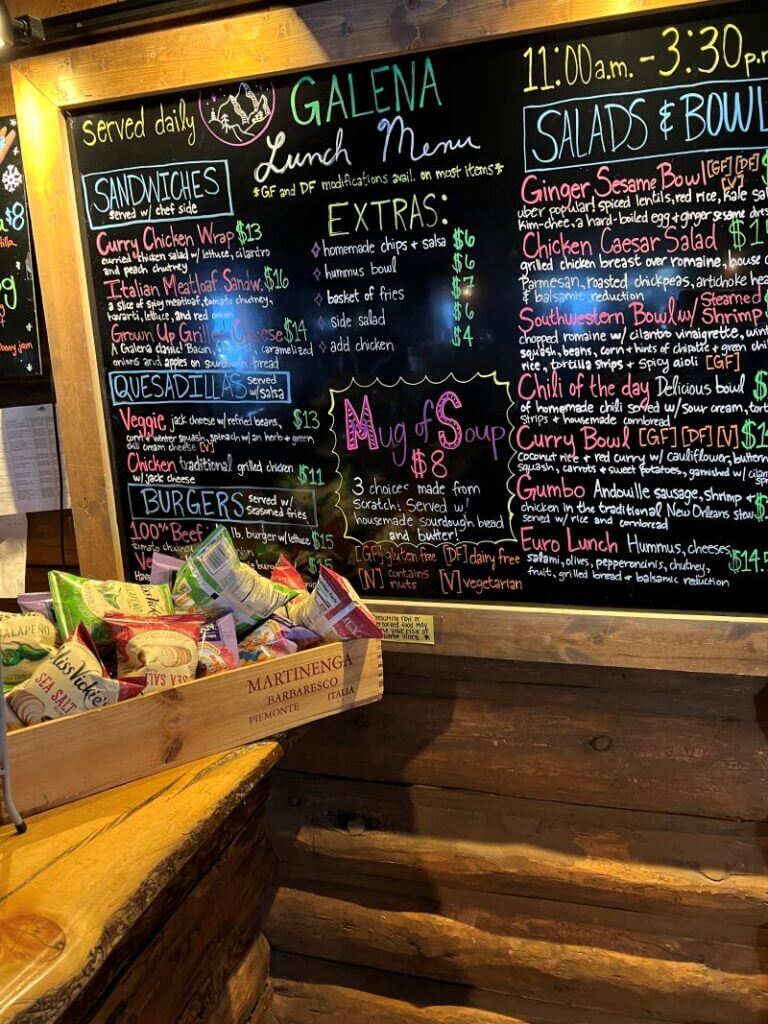 served daily
GALENA
Lunch Menu
*GF and DF modifications avail. on most items*
11:00a.m. - 3:30p.m
SANDWICHES
served w/ chef side
Curry Chicken Wrap $13
curried chicken salad w/ lettuce, cilantro
and peach chutney
Italian Meatloaf Sandw. $16
a slice of spicy meatloaf, tomato chutney,
havarti, lettuce, and red onion
Grown Up Grilled Cheese $14
A Galena classic! Bacon, caramelized
onions and apples on sourdough bread
QUESADILLAS served w/salsa
Veggie jack cheese w/ refried beans, $13
corn + winter squash, spinach w/ an herb + green
chili cream cheese [V]
Chicken traditional grilled chicken $11
w/ jack cheese
BURGERS served w/ seasoned fries
100% Beef lb. burger w/ lettuce $15
tomato
EXTRAS:
homemade chips + salsa $6
hummus bowl $6
basket of fries $7
side salad $6
add chicken $4
Mug of Soup
$8
3 choices made from
Scratch! Served w/
housemade sourdough bread
and butter!
[GF] gluten free [DF] dairy free
[N] contains nuts [V] vegetarian
SALADS & BOWL
Ginger Sesame Bowl [GF] [DF] [V]
uber popular! spiced lentils, red rice, kale sal
kim-chee, a hard-boiled egg + ginger sesame dres
Chicken Caesar Salad $1
grilled chicken breast over romaine, house c
Parmesan, roasted chickpeas, artichoke hea
& balsamic reduction
Southwestern Bowl w/ Steamed Shrimp
chopped romaine w/ cilantro vinaigrette, wint
squash, beans, corn + hints of chipotle + green chil
rice, tortilla strips + spicy aioli [GF]
Chili of the day Delicious bowl $
of homemade chili served w/ sour cream, tort
strips + housemade cornbread
Curry Bowl [GF] [DF] [V] $1
Coconut rice + red curry w/ cauliflower, buttern
squash, carrots + sweet potatoes, garnished w/ cilan
Gumbo Andouille sausage, shrimp +
chicken in the traditional New Orleans stew $
served w/ rice and cornbread
Euro Lunch Hummus, cheeses, $14.5
salami, olives, pepperoncini, chutney,
fruit, grilled bread & balsamic reduction
MARTINENGA
BARBARESCO
PIEMONTE ITALIA
JALAPEÑO
SEA SALT
SEA SALT